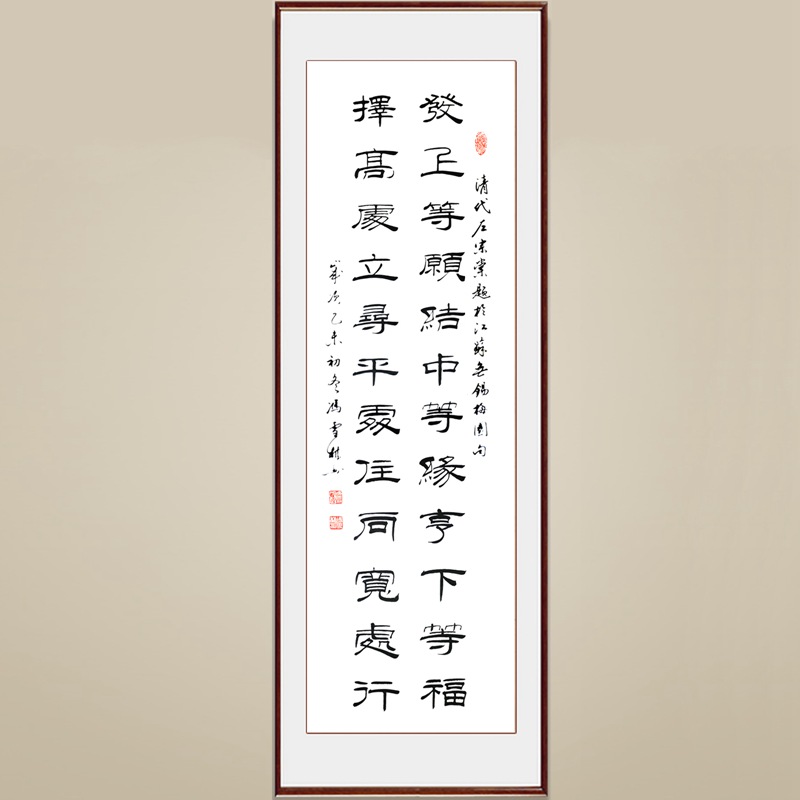 清代左宗棠題於江蘇無錫梅園句
發上等願結中等緣亨下等福
擇髙處立尋平處住向寬處行
歲乙未初冬馮雪